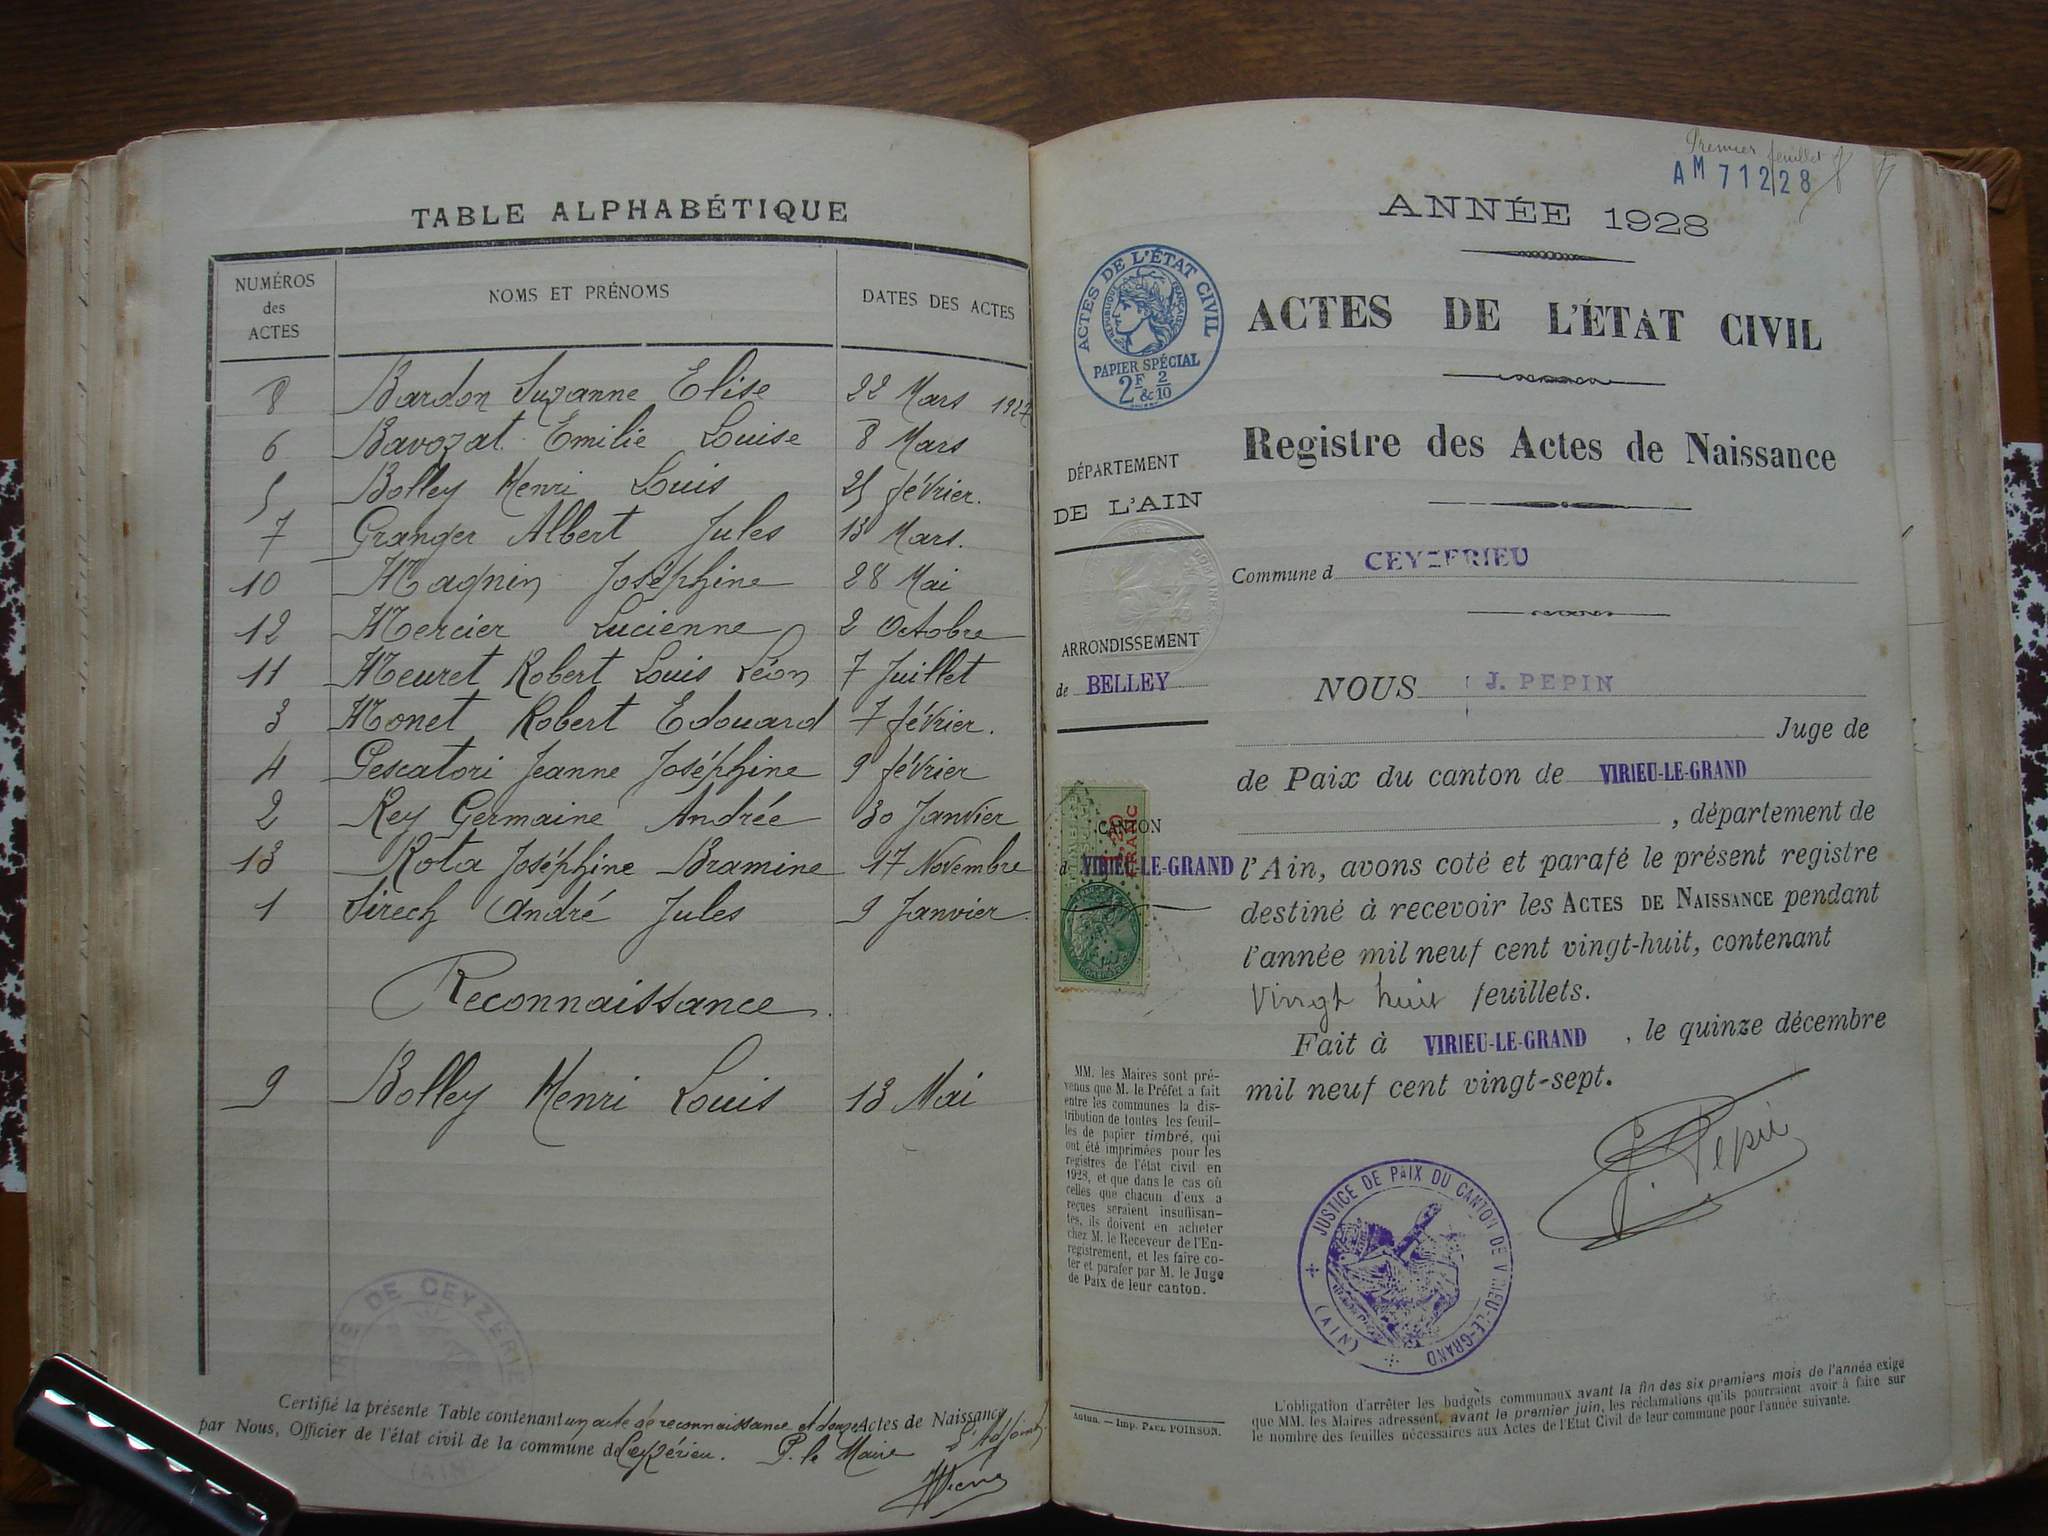 TABLE ALPHABÉTIQUE
NUMÉROS
des
ACTES
NOMS ET PRÉNOMS
DATES DES ACTES
8 Bardon Suzanne Elise 22 Mars 1927
6 Bavozat Emilie Louise 8 Mars
5 Bolley Henri Louis 25 février.
7 Granger Albert Jules 13 Mars.
10 Magnin Joséphine 28 Mai
12 Mercier Lucienne 2 Octobre
11 Meuret Robert Louis Léon 7 Juillet
3 Monet Robert Edouard 7 février.
4 Pescatori Jeanne Joséphine 9 février
2 Rey Germaine Andrée 30 Janvier
13 Rota Joséphine Bramine 17 Novembre
1 Sirech André Jules 9 Janvier
Reconnaissance.
9 Bolley Henri Louis 13 Mai
DE CEYZERIEU
(AIN)
Certifié la présente Table contenant un acte de reconnaissance et douze Actes de Naissance
par Nous, Officier de l'état civil de la commune de Ceyzérieu. P. le Maire l'Adjoint
Premier feuillet
AM 71228
ANNÉE 1928
ACTES DE L'ÉTAT CIVIL
RÉPUBLIQUE FRANÇAISE
PAPIER SPÉCIAL
2F & 2/10
ACTES DE L'ÉTAT CIVIL
Registre des Actes de Naissance
DÉPARTEMENT
DE L'AIN
Commune d CEYZERIEU
ARRONDISSEMENT
de BELLEY
NOUS J. PEPIN
Juge de
de Paix du canton de VIRIEU-LE-GRAND
, département de
CANTON
d VIRIEU-LE-GRAND
FRANC
l'Ain, avons coté et parafé le présent registre
destiné à recevoir les ACTES DE NAISSANCE pendant
l'année mil neuf cent vingt-huit, contenant
Vingt huit feuillets.
Fait à VIRIEU-LE-GRAND, le quinze décembre
mil neuf cent vingt-sept.
J. Pepin
MM. les Maires sont pré-
venus que M. le Préfet a fait
entre les communes la dis-
tribution de toutes les feuil-
les de papier timbré, qui
ont été imprimées pour les
registres de l'état civil en
1928, et que dans le cas où
celles que chacun d'eux a
reçues seraient insuffisan-
tes, ils doivent en acheter
chez M. le Receveur de l'En-
registrement, et les faire co-
ter et parafer par M. le Juge
de Paix de leur canton.
JUSTICE DE PAIX DU CANTON DE VIRIEU-LE-GRAND
(AIN)
Autun. — Imp. PAUL POIRSON.
L'obligation d'arrêter les budgets communaux avant la fin des six premiers mois de l'année exige
que MM. les Maires adressent, avant le premier juin, les réclamations qu'ils pourraient avoir à faire sur
le nombre des feuilles nécessaires aux Actes de l'État Civil de leur commune pour l'année suivante.